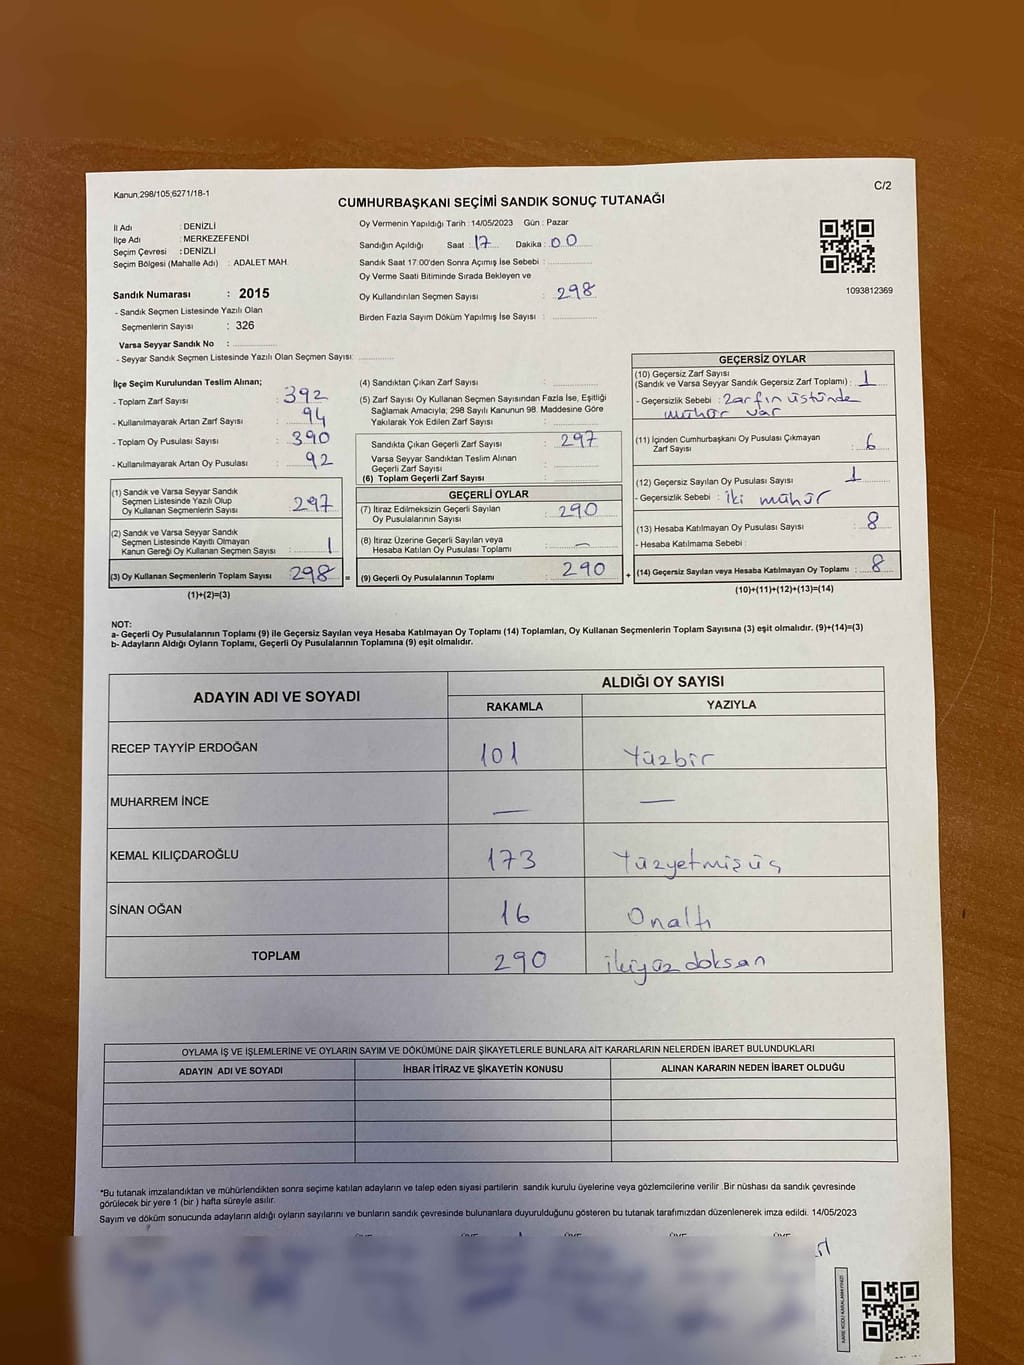 Kanun;298/105;6271/18-1
C/2
CUMHURBAŞKANI SEÇİMİ SANDIK SONUÇ TUTANAĞI
İl Adı : DENİZLİ
İlçe Adı : MERKEZEFENDİ
Seçim Çevresi : DENİZLİ
Seçim Bölgesi (Mahalle Adı) : ADALET MAH.
Sandık Numarası : 2015
- Sandık Seçmen Listesinde Yazılı Olan
Seçmenlerin Sayısı : 326
Varsa Seyyar Sandık No :
- Seyyar Sandık Seçmen Listesinde Yazılı Olan Seçmen Sayısı:
Oy Vermenin Yapıldığı Tarih : 14/05/2023 Gün : Pazar
Sandığın Açıldığı Saat : 17 Dakika : 00
Sandık Saat 17:00'den Sonra Açımış İse Sebebi :
Oy Verme Saati Bitiminde Sırada Bekleyen ve
Oy Kullandırılan Seçmen Sayısı : 298
Birden Fazla Sayım Döküm Yapılmış İse Sayısı :
1093812369
İlçe Seçim Kurulundan Teslim Alınan;
- Toplam Zarf Sayısı : 392
- Kullanılmayarak Artan Zarf Sayısı : 94
- Toplam Oy Pusulası Sayısı : 390
- Kullanılmayarak Artan Oy Pusulası : 92
(1) Sandık ve Varsa Seyyar Sandık
Seçmen Listesinde Yazılı Olup
Oy Kullanan Seçmenlerin Sayısı : 297
(2) Sandık ve Varsa Seyyar Sandık
Seçmen Listesinde Kayıtlı Olmayan
Kanun Gereği Oy Kullanan Seçmen Sayısı : 1
(3) Oy Kullanan Seçmenlerin Toplam Sayısı : 298 =
(1)+(2)=(3)
(4) Sandıktan Çıkan Zarf Sayısı :
(5) Zarf Sayısı Oy Kullanan Seçmen Sayısından Fazla İse, Eşitliği
Sağlamak Amacıyla; 298 Sayılı Kanunun 98. Maddesine Göre
Yakılarak Yok Edilen Zarf Sayısı :
Sandıkta Çıkan Geçerli Zarf Sayısı : 297
Varsa Seyyar Sandıktan Teslim Alınan
Geçerli Zarf Sayısı :
(6) Toplam Geçerli Zarf Sayısı :
GEÇERLİ OYLAR
(7) İtiraz Edilmeksizin Geçerli Sayılan
Oy Pusulalarının Sayısı : 290
(8) İtiraz Üzerine Geçerli Sayılan veya
Hesaba Katılan Oy Pusulası Toplamı : —
(9) Geçerli Oy Pusulalarının Toplamı : 290 +
GEÇERSİZ OYLAR
(10) Geçersiz Zarf Sayısı
(Sandık ve Varsa Seyyar Sandık Geçersiz Zarf Toplamı) : 1
- Geçersizlik Sebebi : Zarfın üstünde
mühür var
(11) İçinden Cumhurbaşkanı Oy Pusulası Çıkmayan
Zarf Sayısı : 6
(12) Geçersiz Sayılan Oy Pusulası Sayısı : 1
- Geçersizlik Sebebi : iki mühür
(13) Hesaba Katılmayan Oy Pusulası Sayısı : 8
- Hesaba Katılmama Sebebi :
(14) Geçersiz Sayılan veya Hesaba Katılmayan Oy Toplamı : 8
(10)+(11)+(12)+(13)=(14)
NOT:
a- Geçerli Oy Pusulalarının Toplamı (9) ile Geçersiz Sayılan veya Hesaba Katılmayan Oy Toplamı (14) Toplamları, Oy Kullanan Seçmenlerin Toplam Sayısına (3) eşit olmalıdır. (9)+(14)=(3)
b- Adayların Aldığı Oyların Toplamı, Geçerli Oy Pusulalarının Toplamına (9) eşit olmalıdır.
ADAYIN ADI VE SOYADI
ALDIĞI OY SAYISI
RAKAMLA YAZIYLA
RECEP TAYYİP ERDOĞAN 101 Yüzbir
MUHARREM İNCE — —
KEMAL KILIÇDAROĞLU 173 Yüzyetmişüç
SİNAN OĞAN 16 Onaltı
TOPLAM 290 ikiyüz doksan
OYLAMA İŞ VE İŞLEMLERİNE VE OYLARIN SAYIM VE DÖKÜMÜNE DAİR ŞİKAYETLERLE BUNLARA AİT KARARLARIN NELERDEN İBARET BULUNDUKLARI
ADAYIN ADI VE SOYADI İHBAR İTİRAZ VE ŞİKAYETİN KONUSU ALINAN KARARIN NEDEN İBARET OLDUĞU
*Bu tutanak imzalandıktan ve mühürlendikten sonra seçime katılan adayların ve talep eden siyasi partilerin sandık kurulu üyelerine veya gözlemcilerine verilir .Bir nüshası da sandık çevresinde
görülecek bir yere 1 (bir ) hafta süreyle asılır.
Sayım ve döküm sonucunda adayların aldığı oyların sayılarını ve bunların sandık çevresinde bulunanlara duyurulduğunu gösteren bu tutanak tarafımızdan düzenlenerek imza edildi. 14/05/2023
KARE KODU KARALAMAYINIZ!